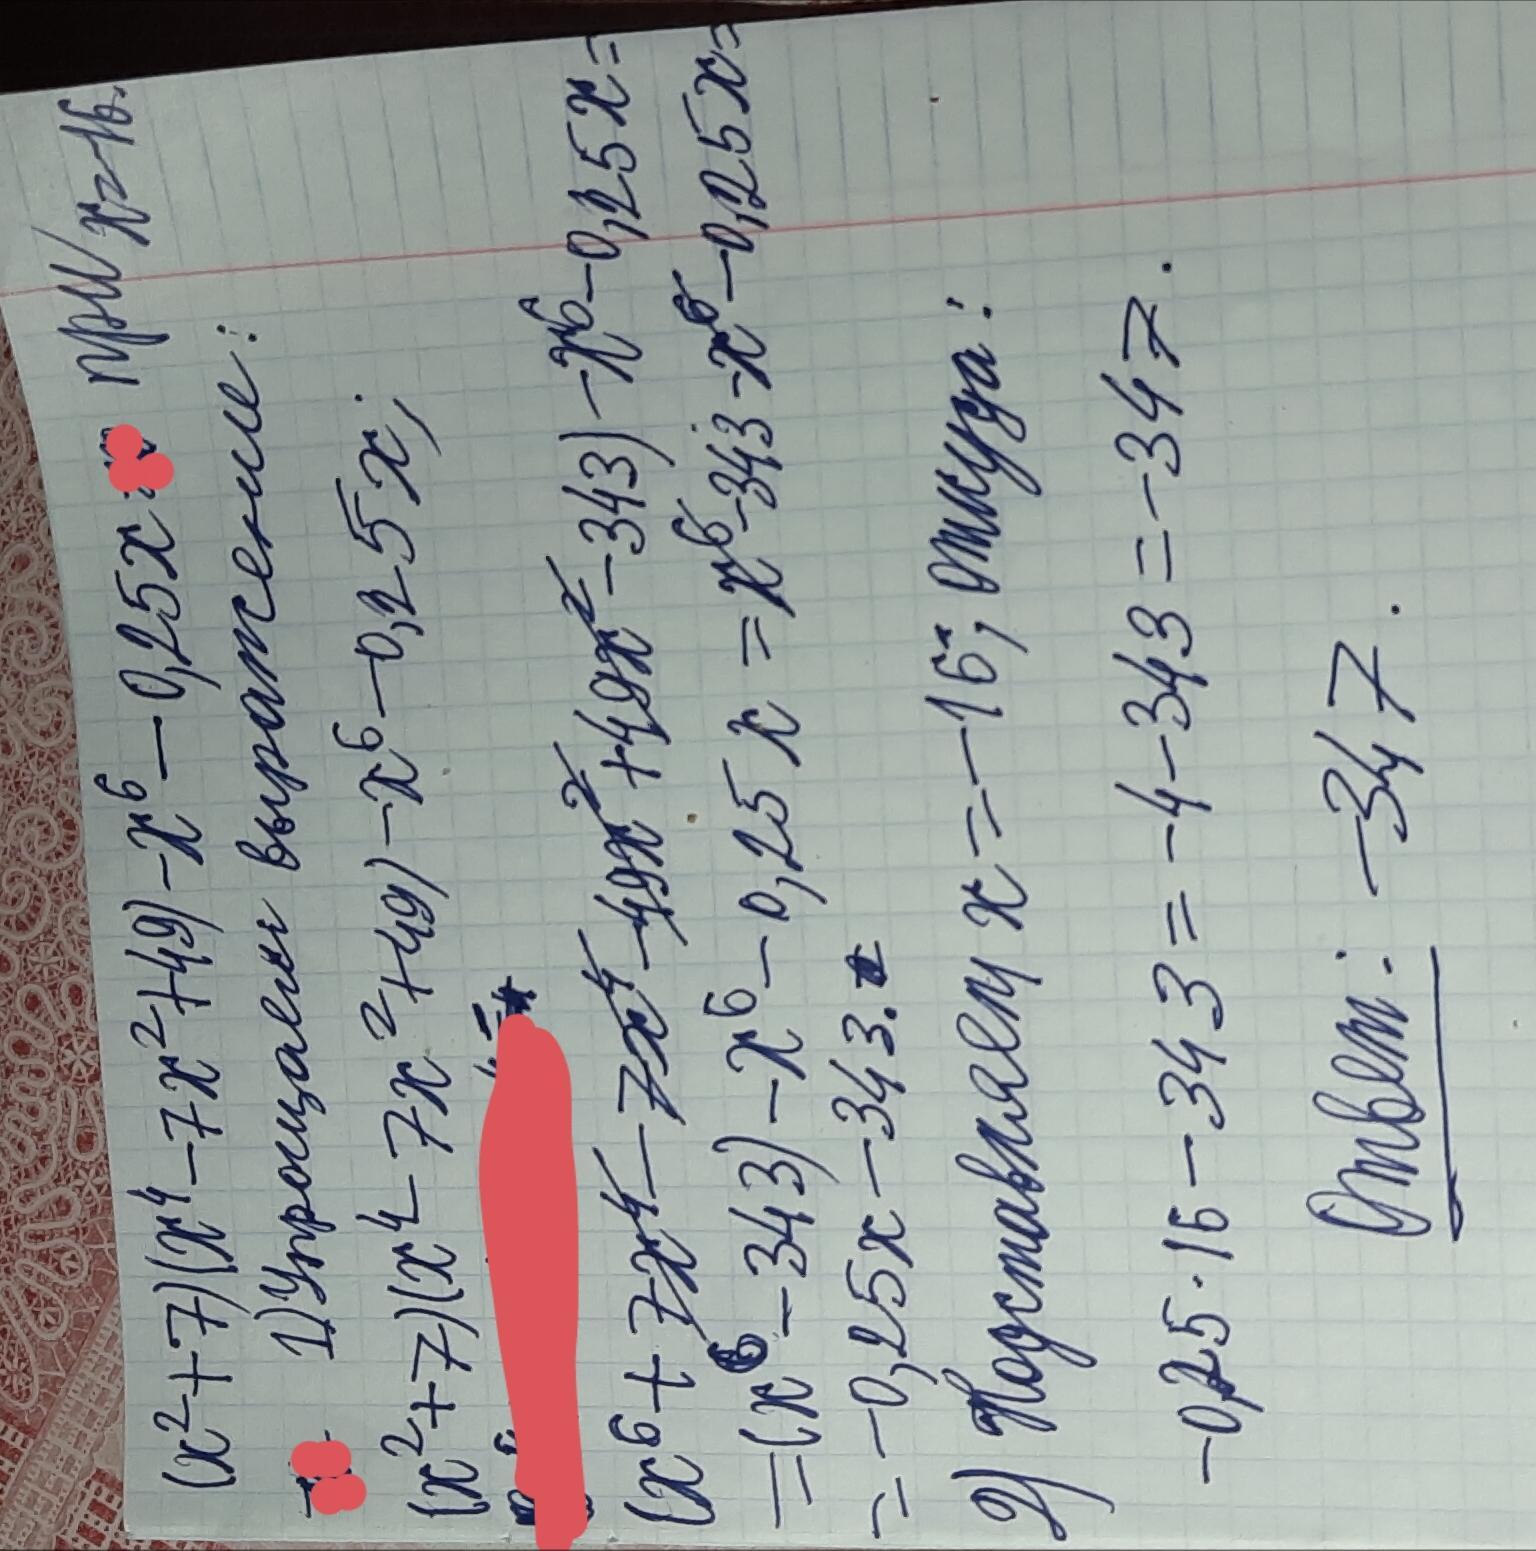 (x²+7)(x⁴-7x²+49)-x⁶-0,25x при x=-16.
1) Упрощаем выражение:
(x²+7)(x⁴-7x²+49)-x⁶-0,25x;
(x⁶+7x⁴-7x⁴-49x²+49x²-343)-x⁶-0,25x=
=(x⁶-343)-x⁶-0,25x=x⁶-343-x⁶-0,25x=
=-0,25x-343.
2) Подставляем x=-16, откуда:
-0,25·16-343=-4-343=-347.
Ответ: -347.